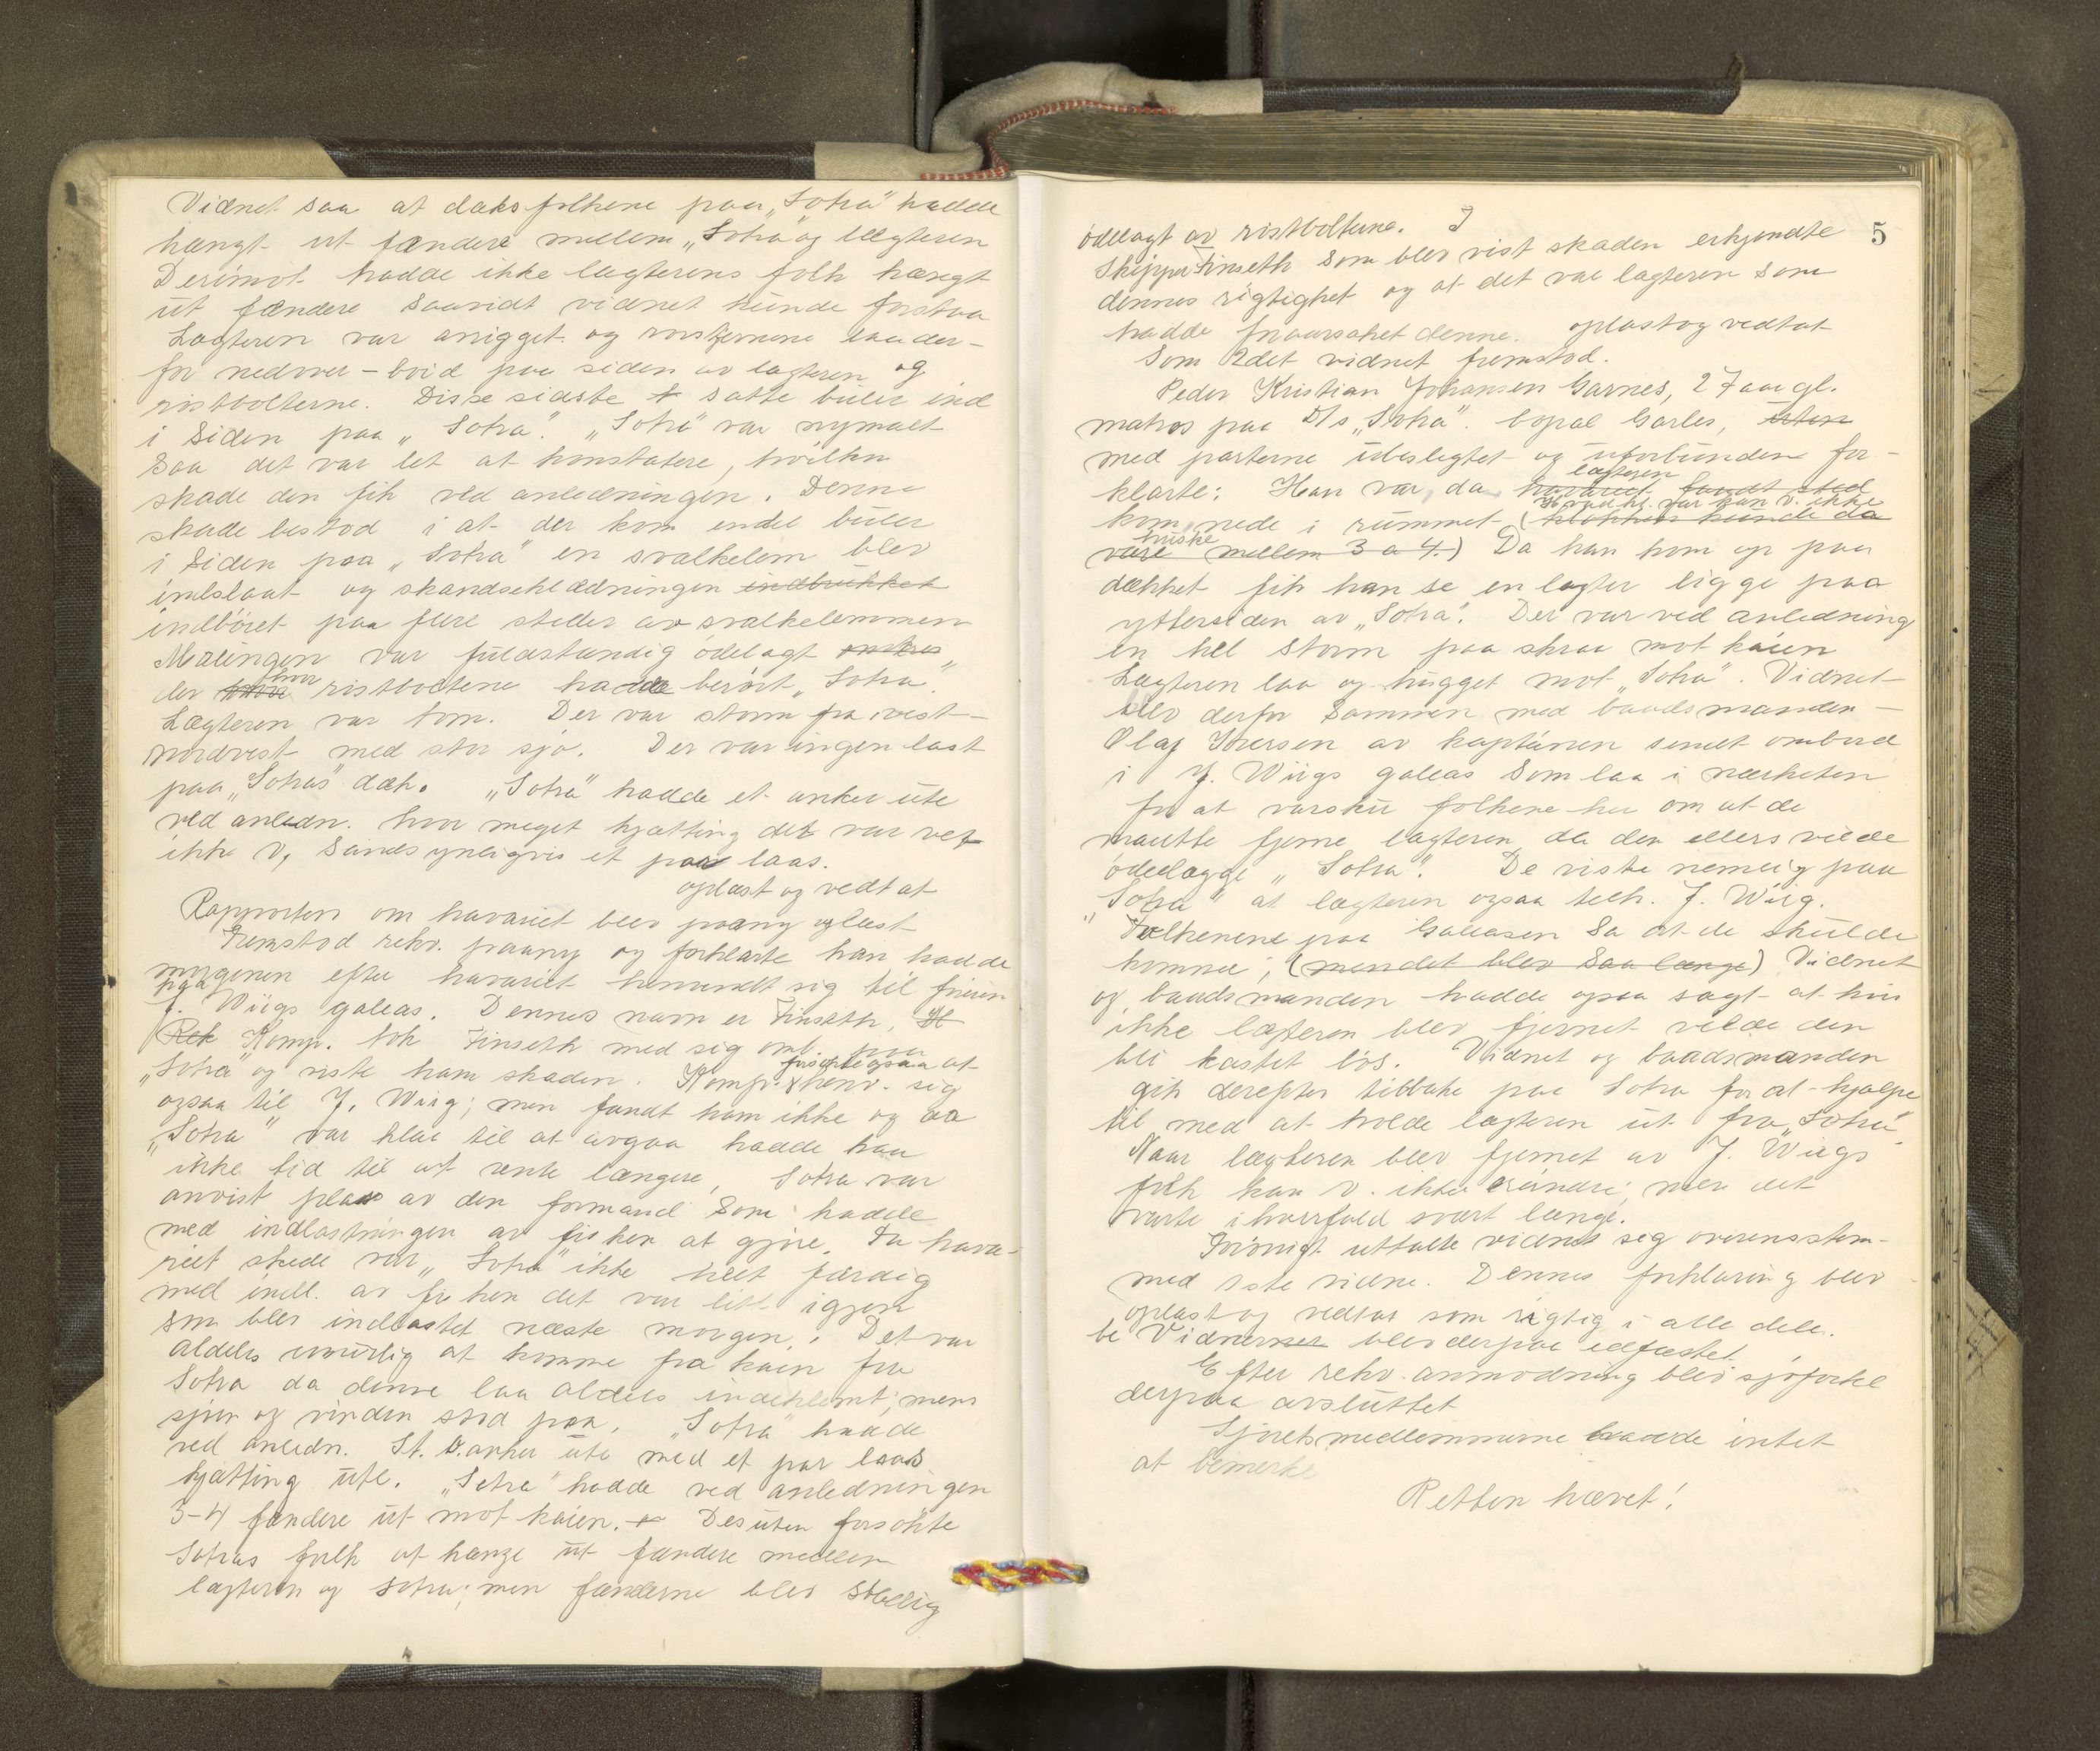 Vidnet saa at daksfolkene paa „Sotra" hadde
hængt ut fændere mellem „Sotra" og lægteren
Derimot hadde ikke lægterens folk hængt
ut fændere saavidt vidnet kunde forstaa
Lægteren var avrigget og laa der-
for nedover - paa siden av lægteren og
ristboltene. Disse sidste satte buler ind
i siden paa „Sotra". „Sotra" var nymalt
saa det var let at konstatere, hvilken
skade den fik ved anledningen. Denne
skade bestod i at der kom endel buler
i siden paa „Sotra" en svalkelem blev
indslaat og skandseklædningen indtrukket
indbøiet paa flere steder av svalkelemmen
Malingen var fuldstændig ødelagt
der hvor ristboltene hadde berørt „Sotra".
Lægteren var tom. Der var storm fra vest-
nordvest med stor sjø. Der var ingen last
paa „Sotras" dæk. „Sotra" hadde et anker ute
ved anledn. hvor meget kjætting det var vet
ikke V, sandsynligvis et par laas.
oplæst og vedtat
Rapporten om havariet blev paany oplæst
Fremstod rekv. paany og forklarte han hadde
morgenen efter havariet henvendt sig til føreren
paa J. Wiigs galeas. Dennes navn er Finseth,
Rek Komp. tok Finseth med sig omb. paa
„Sotra" og viste ham skaden. Komp. forsøkte ogsaa at henv. sig
ogsaa til J. Wiig; men fandt ham ikke og da
„Sotra" var klar til at avgaa hadde han
ikke tid til at vente længere, Sotra var
anvist plass av den formand som hadde
med indlastningen av fisken at gjøre. Da hava-
riet skede var „Sotra" ikke helt færdig
med indl. av fisken det var litt igjen
som blev indlastet næste morgen. Det var
aldeles umulig at komme fra kaien for
Sotra da denne laa aldeles indeklemt, mens
sjøen og vinden stod paa. „Sotra" hadde
ved anledn. St. B. anker ute med et par laas
kjætting ute. „Sotra" hadde ved anledningen
3-4 fændere ut mot kaien. Desuten forsøkte
Sotras folk at hænge ut fændere mellem
lægteren og Sotra; men fænderne blev stadig
5
ødelagt av ristboltene.
Skipper Finseth som blev vist skaden erkjendte
dennes rigtighet og at det var lægteren som
hadde foraarsaket denne. oplæst og vedtat
Som 2det vidnet fremstod.
Peder Kristian Johansen Garnes, 27 aar gl.
matros paa D/s „Sotra". bopæl Garnes,
med parterne ubeslegtet og uforbunden for-
klarte: Han var, da lægteren havariet fandt sted
kom, nede i rummet (Hvad kl. var kan V. ikke klokken kunde da
huske være mellem 3 a 4.) Da han kom op paa
dækket fik han se en lægter ligge paa
yttersiden av „Sotra". Der var ved anledning
en hel storm paa skraa mot kaien
Lægteren laa og hugget mot „Sotra". Vidnet
blev derfor sammen med baadsmanden
Olaf Iversen av kapteinen sendt ombord
i J. Wiigs galeas som laa i nærheten
for at varsku folkene her om at de
maatte fjerne lægteren da den ellers vilde
ødelægge „Sotra". De viste nemlig paa
„Sotra" at lægteren ogsaa tilh. J. Wiig.
Folkenene paa Galeasen sa at de skulde
komme, (men det blev saa længe) Vidnet
og baadsmanden hadde ogsaa sagt at hvis
ikke lægteren blev fjernet vilde den
bli kastet løs. Vidnet og baadsmanden
gik derefter tilbake paa Sotra for at hjælpe
til med at holde lægteren ut fra „Sotra".
Naar lægteren blev fjernet av J. Wiigs
folk kan V. ikke erindre, men det
varte i hvertfald svært længe.
Forøvrigt uttalte vidnet seg overensstem-
med 1ste vidne. Dennes forklaring blev
oplæst og vedtat som rigtig i alle dele.
Vidnerne blev derpaa edfæstet
Efter rekv. anmodning blev sjøforkl
derpaa avsluttet
Sjøretsmedlemmerne havde intet
at bemerke
Retten hævet!